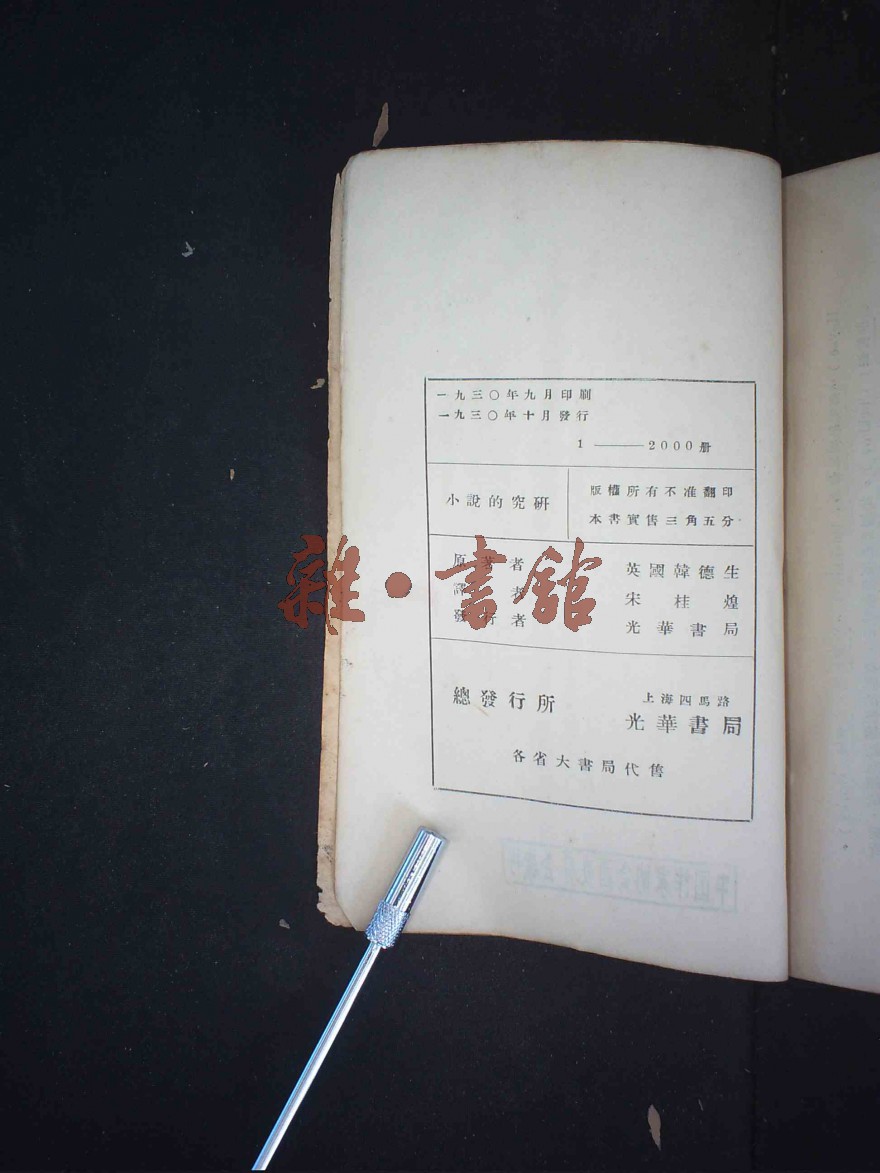 一九三〇年九月印刷
一九三〇年十月發行
1——2000册
小說的究研
版權所有不准翻印
本書實售三角五分
原著者 英國韓德生
譯者 宋桂煌
發行者 光華書局
總發行所
上海四馬路
光華書局
各省大書局代售
雜·書館